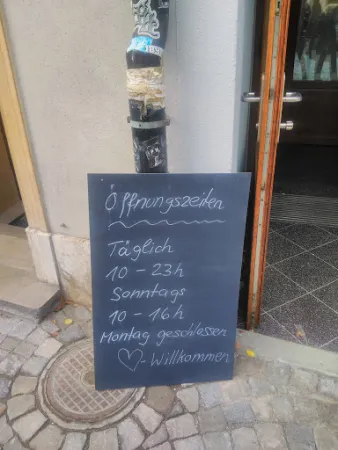 Öffnungszeiten
Täglich
10 - 23h
Sonntags
10 - 16h
Montag geschlossen
♡-Willkommen